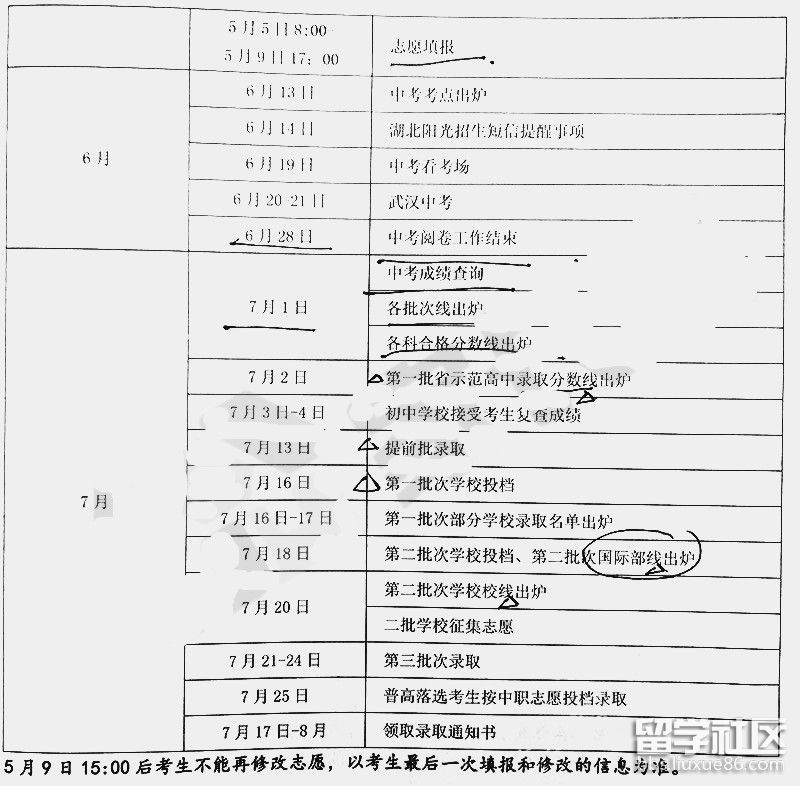 5月5日8:00-
5月9日17:00
志愿填报
6月
6月13日
中考考点出炉
6月14日
湖北阳光招生短信提醒事项
6月19日
中考看考场
6月20-21日
武汉中考
6月28日
中考阅卷工作结束
7月
7月1日
中考成绩查询
各批次线出炉
各科合格分数线出炉
7月2日
第一批省示范高中录取分数线出炉
7月3日-4日
初中学校接受考生复查成绩
7月13日
提前批录取
7月16日
第一批次学校投档
7月16日-17日
第一批次部分学校录取名单出炉
7月18日
第二批次学校投档、第二批次国际部线出炉
7月20日
第二批次学校校线出炉
二批学校征集志愿
7月21-24日
第三批次录取
7月25日
普高落选考生按中职志愿投档录取
7月17日-8月
领取录取通知书
5月9日15:00后考生不能再修改志愿，以考生最后一次填报和修改的信息为准。
留学社区
bbs.liuxue86.com